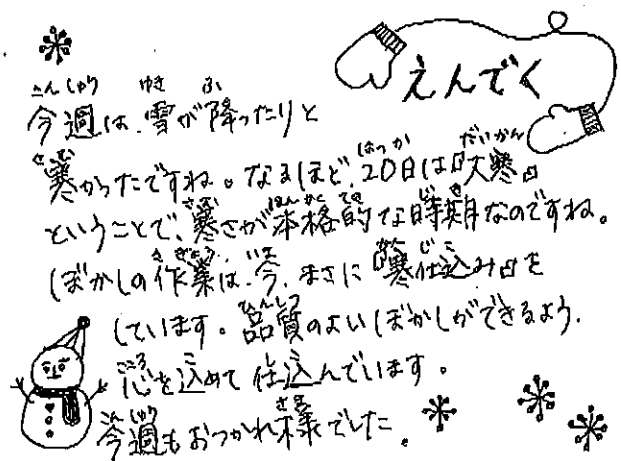 えんでく
今週は、雪が降ったりと
寒かったですね。なるほど、20日は『大寒』
ということで、寒さが本格的な時期なのですね。
ぼかしの作業は、今、まさに『寒仕込み』を
しています。品質のよいぼかしができるよう、
心を込めて仕込んでいます。
今週もおつかれ様でした。